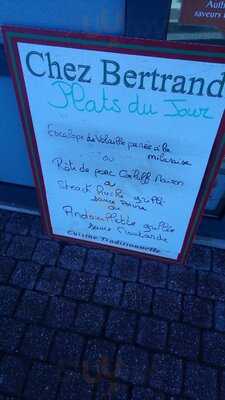 Chez Bertrand
Plats du Jour
Escalope de Volaille panée à la
milanaise
ou
Rôti de porc
ou
Steack haché grillé
sauce
ou
Andouillette grillée
sauce moutarde
Cuisine Traditionnelle